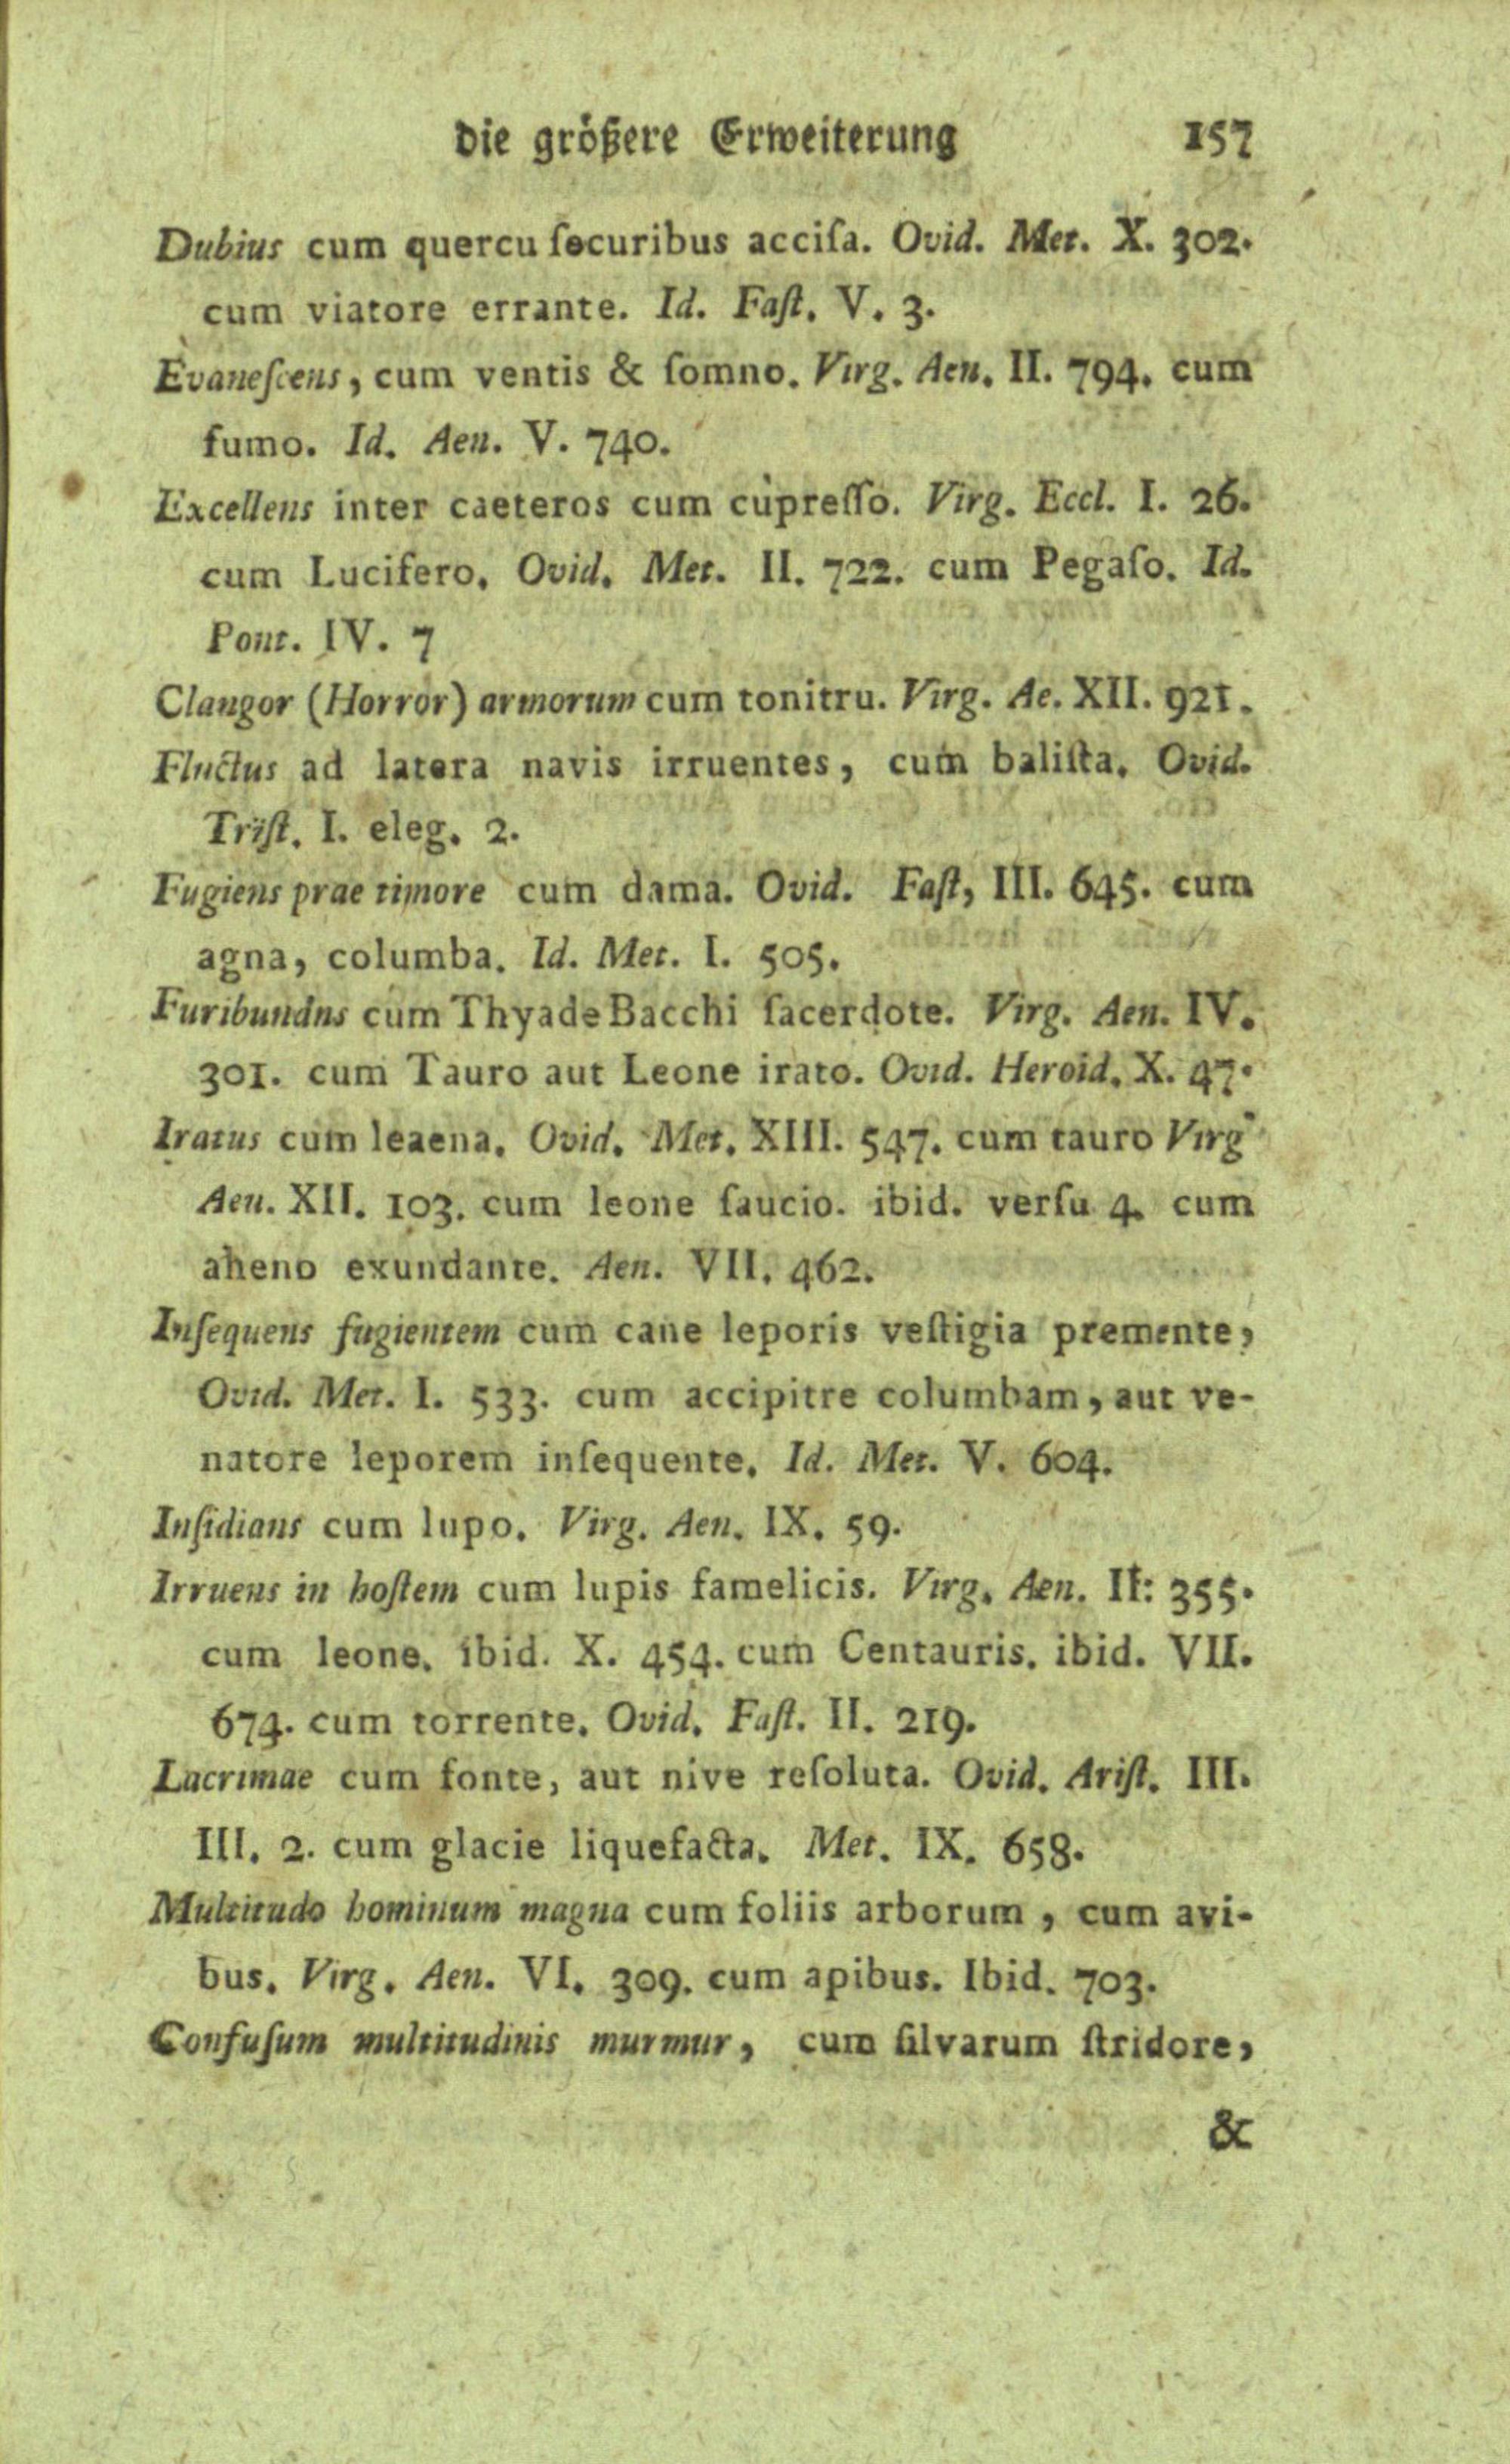 die größere Erweiterung 157
Dubius cum quercu ſecuribus acciſa. Ovid. Met. X. 302.
cum viatore errante. Id. Faſt. V. 3.
Evaneſcens, cum ventis & ſomno. Virg. Aen. II. 794. cum
fumo. Id. Aen. V. 740.
Excellens inter caeteros cum cupreſſo. Virg. Eccl. I. 26.
cum Lucifero, Ovid. Met. II. 722. cum Pegaſo. Id.
Pont. IV. 7
Clangor (Horror) armorum cum tonitru. Virg. Ae. XII. 921.
Fluctus ad latera navis irruentes, cum baliſta. Ovid.
Triſt. I. eleg. 2.
Fugiens prae timore cum dama. Ovid. Faſt, III. 645. cum
agna, columba. Id. Met. I. 505.
Furibundus cum Thyade Bacchi ſacerdote. Virg. Aen. IV.
301. cum Tauro aut Leone irato. Ovid. Heroid. X. 47.
Iratus cum leaena. Ovid. Met. XIII. 547. cum tauro Virg
Aen. XII. 103. cum leone ſaucio. ibid. verſu 4. cum
aheno exundante. Aen. VII. 462.
Inſequens fugientem cum cane leporis veſtigia premente,
Ovid. Met. I. 533. cum accipitre columbam, aut ve-
natore leporem inſequente. Id. Met. V. 604.
Inſidians cum lupo. Virg. Aen. IX. 59.
Irruens in hoſtem cum lupis famelicis. Virg. Aen. II: 355.
cum leone. ibid. X. 454. cum Centauris. ibid. VII.
674. cum torrente. Ovid. Faſt. II. 219.
Lacrimae cum fonte, aut nive reſoluta. Ovid. Ariſt. III.
III. 2. cum glacie liquefacta. Met. IX. 658.
Multitudo hominum magna cum foliis arborum, cum avi-
bus. Virg. Aen. VI. 309. cum apibus. Ibid. 703.
Confuſum multitudinis murmur, cum ſilvarum ſtridore,
&